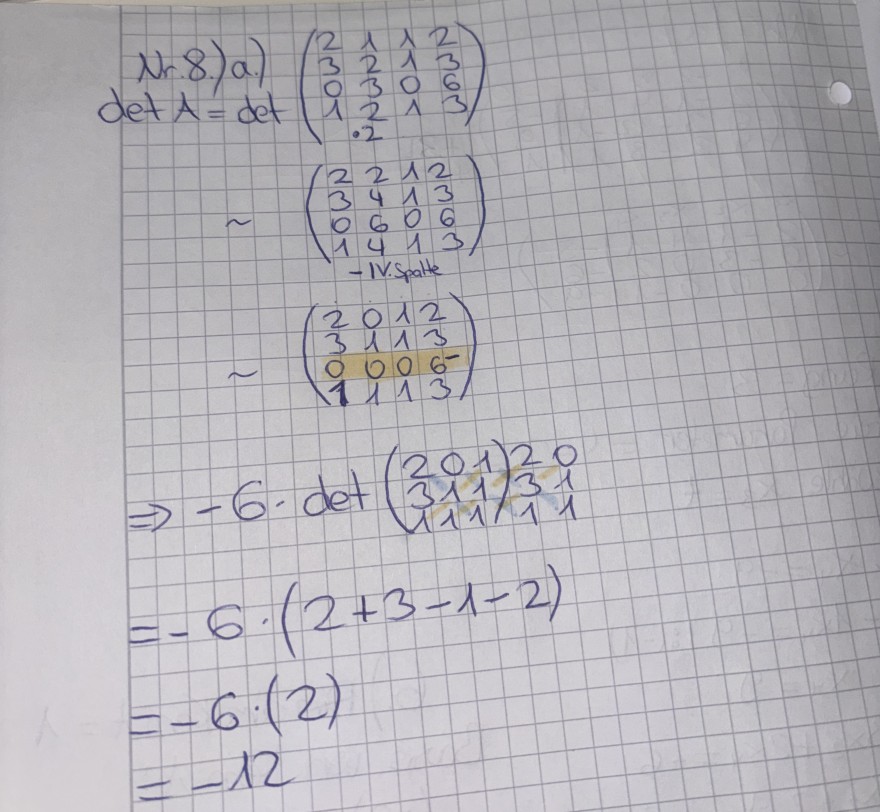 Nr. 8.) a.)
det A = det
2 1 1 2
3 2 1 3
0 3 0 6
1 2 1 3
·2
~
2 2 1 2
3 4 1 3
0 6 0 6
1 4 1 3
- IV. Spalte
~
2 0 1 2
3 1 1 3
0 0 0 6-
1 1 1 3
⇒ - 6 · det
(2 0 1) 2 0
(3 1 1) 3 1
(1 1 1) 1 1
= - 6 · (2 + 3 - 1 - 2)
= - 6 · (2)
= - 12